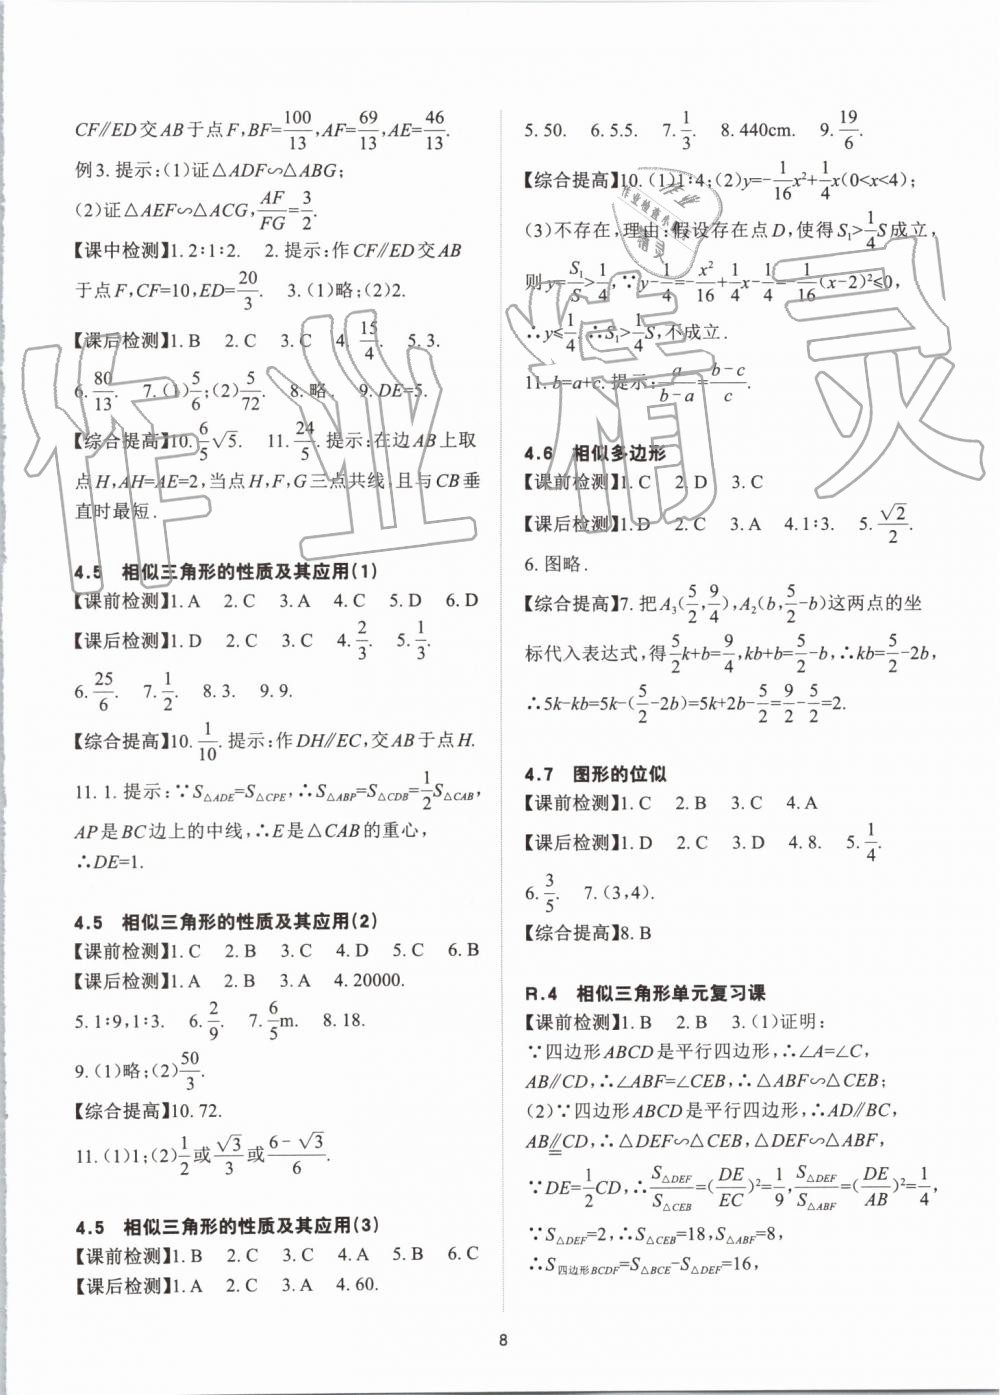 CF∥ED交AB于点F,BF=100/13,AF=69/13,AE=46/13.
例3.提示:(1)证△ADF∽△ABG;
(2)证△AEF∽△ACG,AF/FG=3/2.
【课中检测】1.2∶1∶2. 2.提示:作CF∥ED交AB
于点F,CF=10,ED=20/3. 3.(1)略;(2)2.
【课后检测】1.B 2.C 3.C 4.15/4. 5.3.
6.80/13. 7.(1)5/6;(2)5/72. 8.略. 9.DE=5.
【综合提高】10.6/5√5. 11.24/5.提示:在边AB上取
点H,AH=AE=2,当点H,F,G三点共线,且与CB垂
直时最短.
4.5 相似三角形的性质及其应用(1)
【课前检测】1.A 2.C 3.A 4.C 5.D 6.D
【课后检测】1.D 2.C 3.C 4.2/3. 5.1/3.
6.25/6. 7.1/2. 8.3. 9.9.
【综合提高】10.1/10.提示:作DH∥EC,交AB于点H.
11.1.提示:∵S△ADE=S△CPE,∴S△ABP=S△CDB=1/2S△CAB,
AP是BC边上的中线,∴E是△CAB的重心,
∴DE=1.
4.5 相似三角形的性质及其应用(2)
【课前检测】1.C 2.B 3.C 4.D 5.C 6.B
【课后检测】1.A 2.B 3.A 4.20000.
5.1∶9,1∶3. 6.2/9. 7.6/5m. 8.18.
9.(1)略;(2)50/3.
【综合提高】10.72.
11.(1)1;(2)1/2或√3/3或6-√3/6.
4.5 相似三角形的性质及其应用(3)
【课前检测】1.B 2.C 3.C 4.A 5.B 6.C
【课后检测】1.A 2.C 3.A 4.60.
5.50. 6.5.5. 7.1/3. 8.440cm. 9.19/6.
【综合提高】10.(1)1∶4;(2)y=-1/16x²+1/4x(0<x<4);
(3)不存在,理由:假设存在点D,使得S₁>1/4S成立,
则y=S₁/S>1/4,∵y-1/4=-x²/16+1/4x-1/4=-1/16(x-2)²≤0,
∴y≤1/4.∴S₁>1/4S,不成立.
11.b=a+c.提示:a/b-a=b-c/c.
4.6 相似多边形
【课前检测】1.C 2.D 3.C
【课后检测】1.D 2.C 3.A 4.1∶3. 5.√2/2.
6.图略.
【综合提高】7.把A₃(5/2,9/4),A₂(b,5/2-b)这两点的坐
标代入表达式,得5/2k+b=9/4,kb+b=5/2-b,∴kb=5/2-2b,
∴5k-kb=5k-(5/2-2b)=5k+2b-5/2=9/2-5/2=2.
4.7 图形的位似
【课前检测】1.C 2.B 3.C 4.A
【课后检测】1.D 2.C 3.D 4.8. 5.1/4.
6.3/5. 7.(3,4).
【综合提高】8.B
R.4 相似三角形单元复习课
【课前检测】1.B 2.B 3.(1)证明:
∵四边形ABCD是平行四边形,∴∠A=∠C,
AB∥CD,∴∠ABF=∠CEB,∴△ABF∽△CEB;
(2)∵四边形ABCD是平行四边形,∴AD∥BC,
AB∥CD,∴△DEF∽△CEB,△DEF∽△ABF,
∵DE=1/2CD,∴S△DEF/S△CEB=(DE/EC)²=1/9,S△DEF/S△ABF=(DE/AB)²=1/4,
∵S△DEF=2,∴S△CEB=18,S△ABF=8,
∴S四边形BCDF=S△BCE-S△DEF=16,
8
作业精灵
作业
作业检查小
精灵